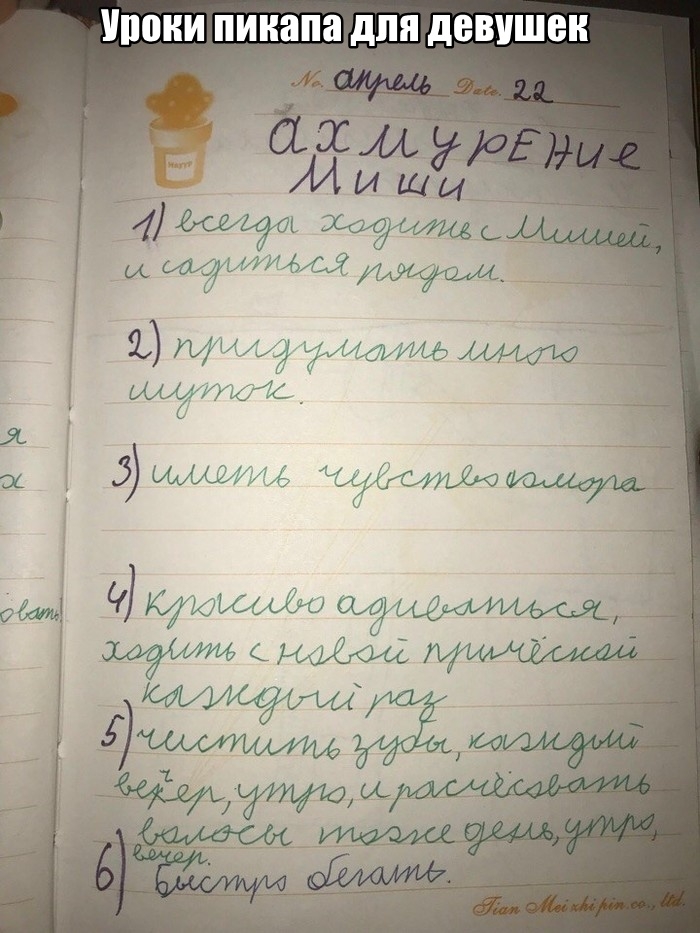 Уроки пикапа для девушек
No. апрель Date. 22
ахмурение
Миши
1) всегда ходить с Мишей,
и садиться рядом.
2) придумать много
шуток.
я
3) иметь чувство юмора
х
4) красиво адиваться,
овать
ходить с новой причёской
каждый раз
5) чистить зубы, каждый
вечер, утро, и расчёсовать
волосы тоже день, утро,
вечер.
6) Быстро бегать.
Tian Meizhipin.co., ltd.